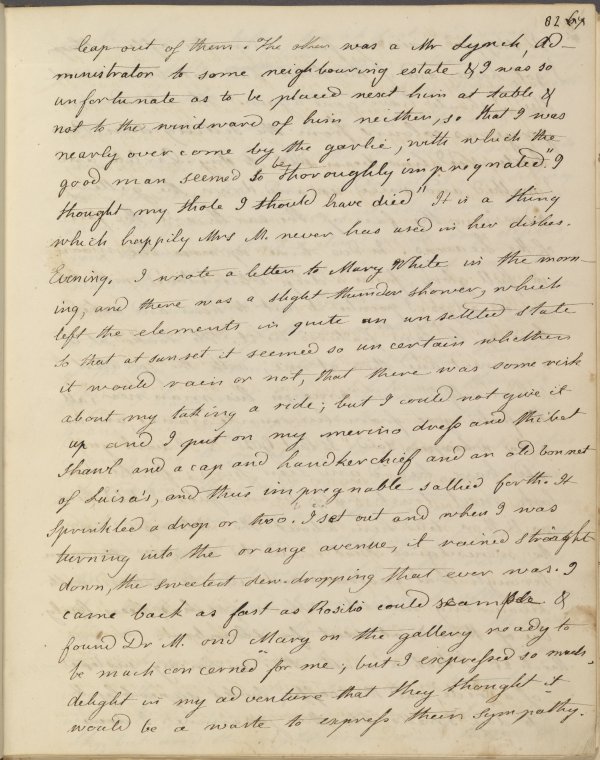 82
leap out of them. The other was a Mr Lynch, Ad-
ministrator to some neighbouring estate & I was so
unfortunate as to be placed next him at table &
not to the windward of him neither, so that I was
nearly overcome by the garlic, with which the
good man seemed to be thoroughly impregnated. "I
thought my thole I should have died" It is a thing
which happily Mrs M. never has used in her dishes.
Evening. I wrote a letter to Mary White in the morn-
ing, and there was a slight thunder shower, which
left the elements in quite an unsettled state
so that at sunset it seemed so uncertain whether
it would rain or not, that there was some risk
about my taking a ride; but I could not give it
up and I put on my merino dress and thibet
shawl and a cap and handkerchief and an old bonnet
of Luisa's, and thus impregnable sallied forth. It
sprinkled a drop or two. I set out and when I was
turning into the orange avenue, it rained straight
down, the sweetest dew-dropping that ever was. I
came back as fast as Rosilio could scamper &
found Dr M. and Mary on the gallery ready to
be much concerned for me; but I expressed so much
delight in my adventure that they thought it
would be a waste to express their sympathy.